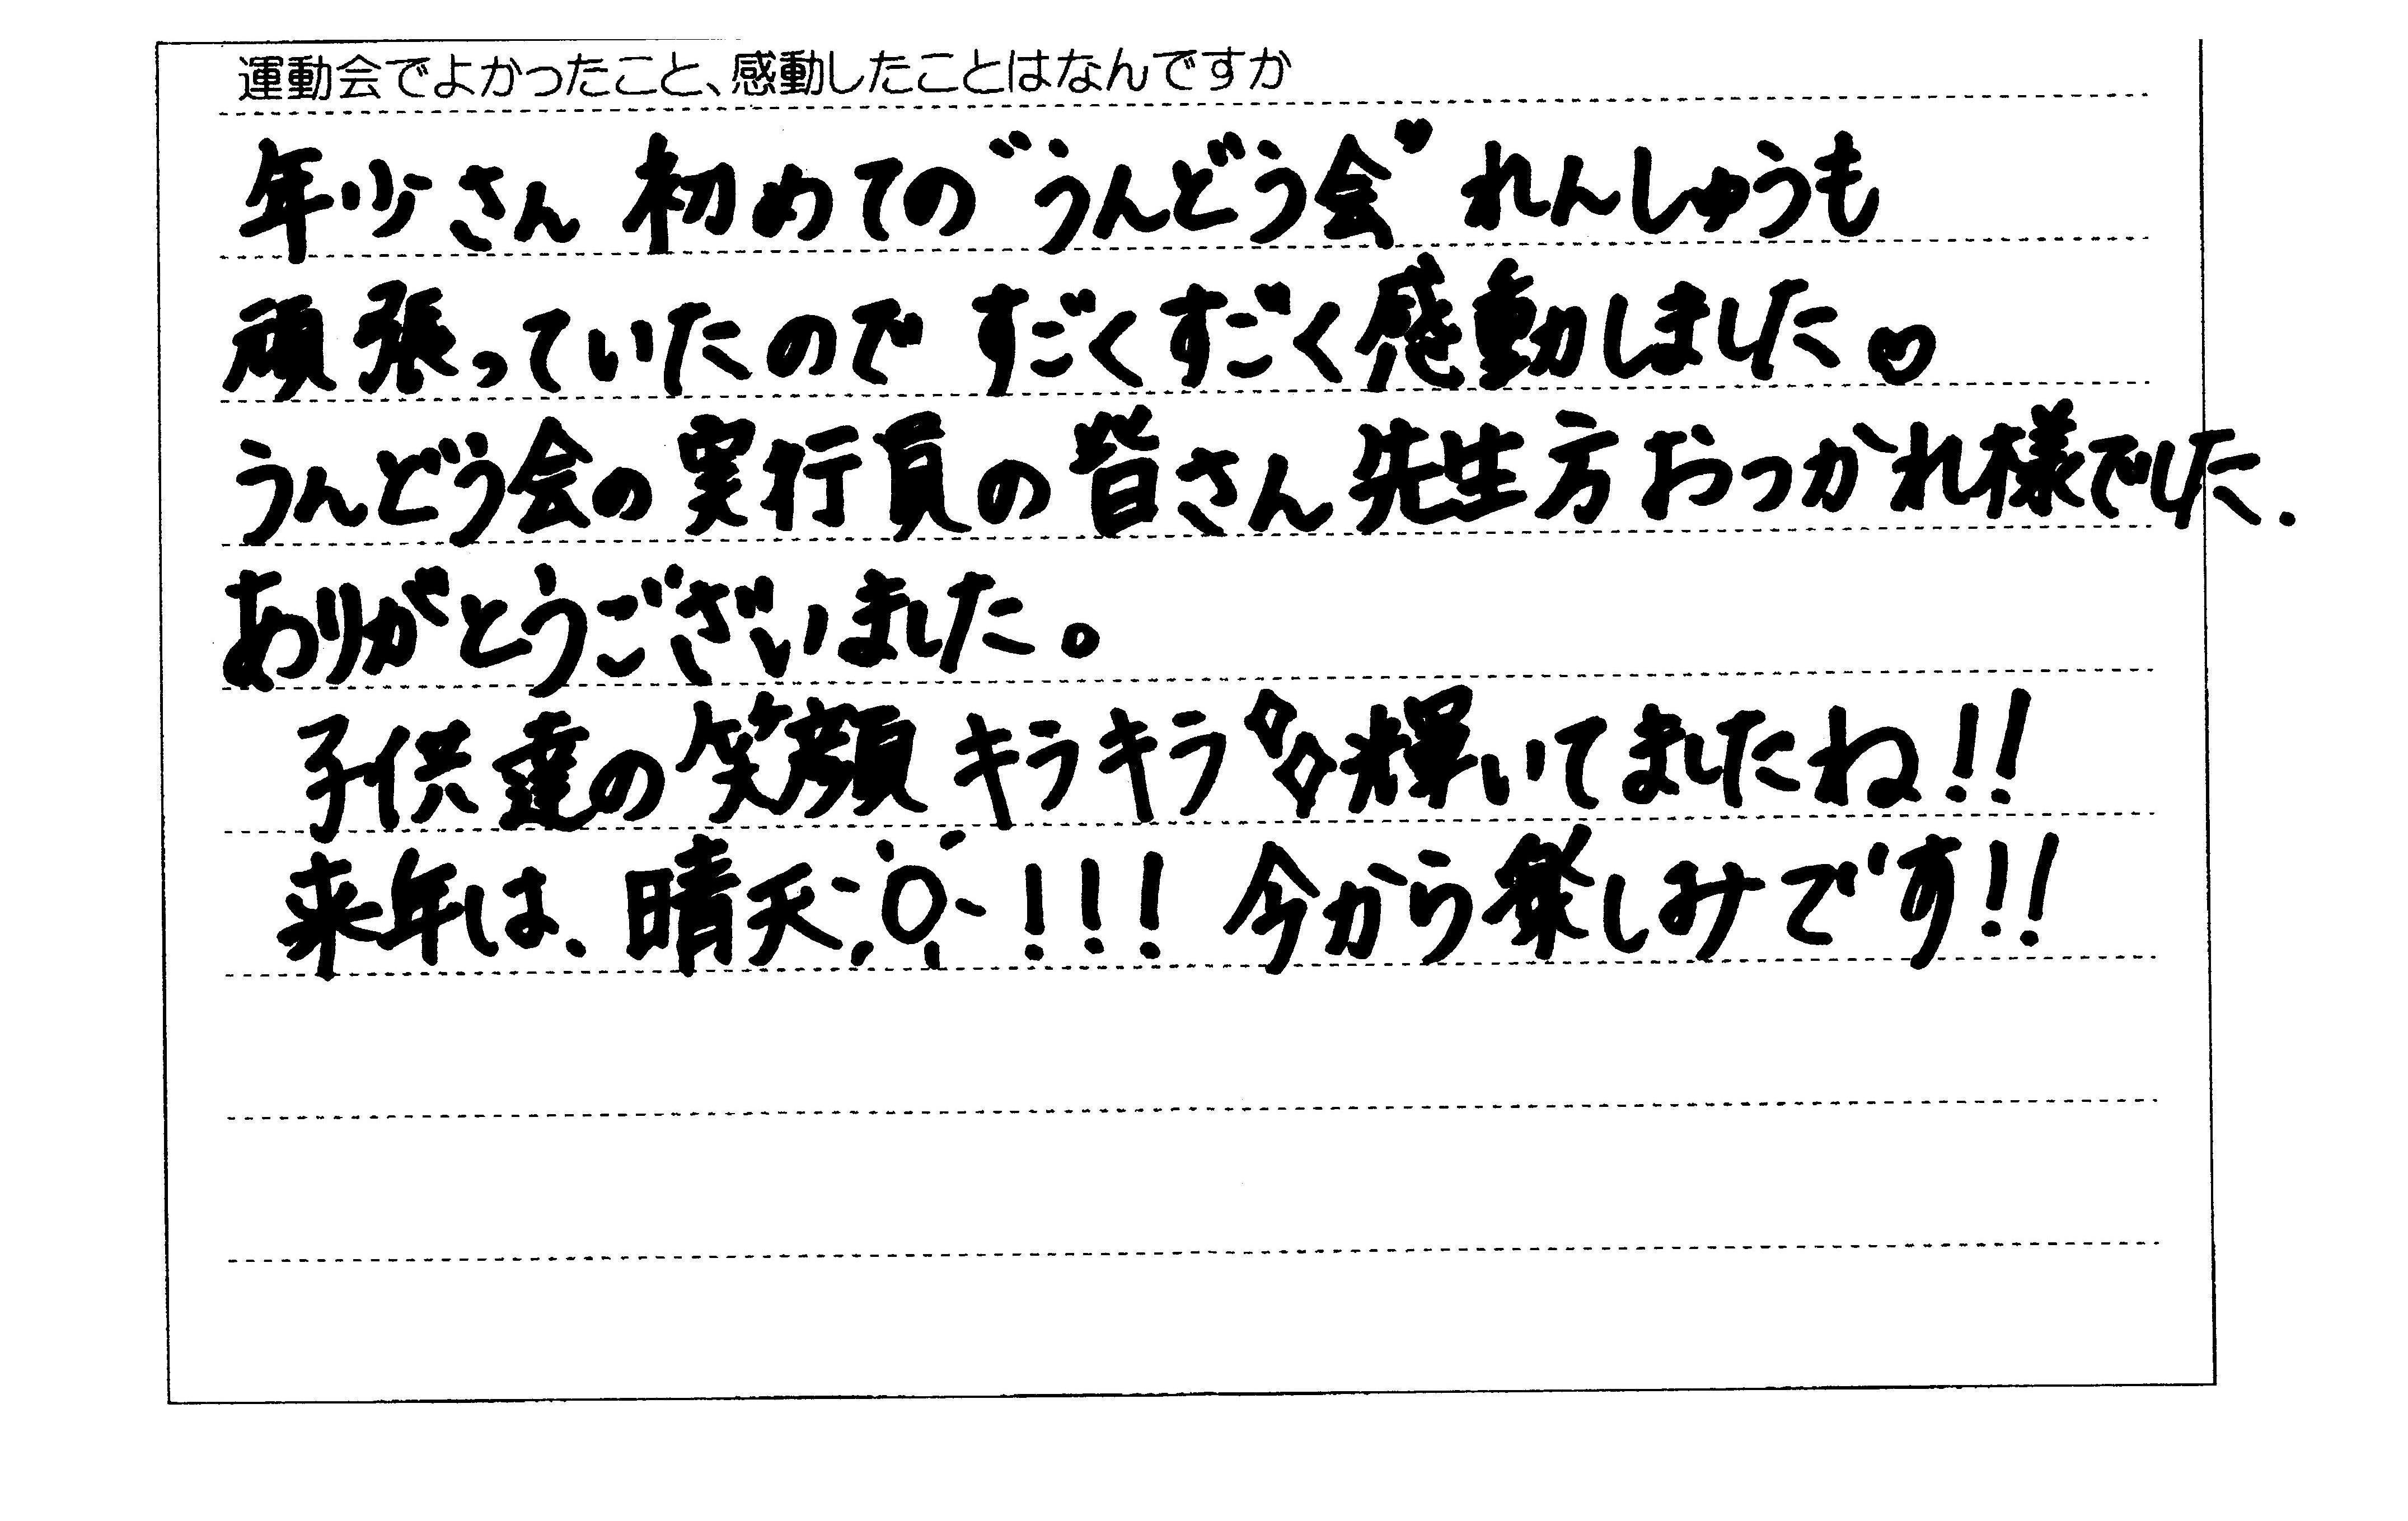 運動会でよかったこと、感動したことはなんですか
年少さん 初めての"うんどう会"♥ れんしゅうも
頑張っていたので すごくすごく感動しました♡
うんどう会の実行員の皆さん先生方おつかれ様でした.
ありがとうございました。
子供達の笑顔キラキラ輝いてましたね!!
来年は、晴天!!! 今から楽しみです!!